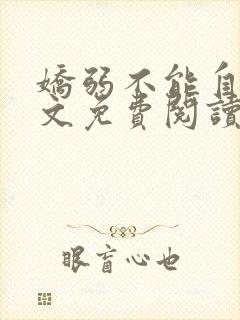 嬌弱不能自
文免費閱讀
眼盲心也